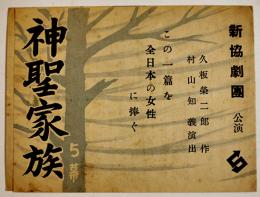 新協劇團 公演
久板榮二郎 作
村山知義 演出
この一篇を
全日本の女性
に捧ぐ
神聖家族
5幕